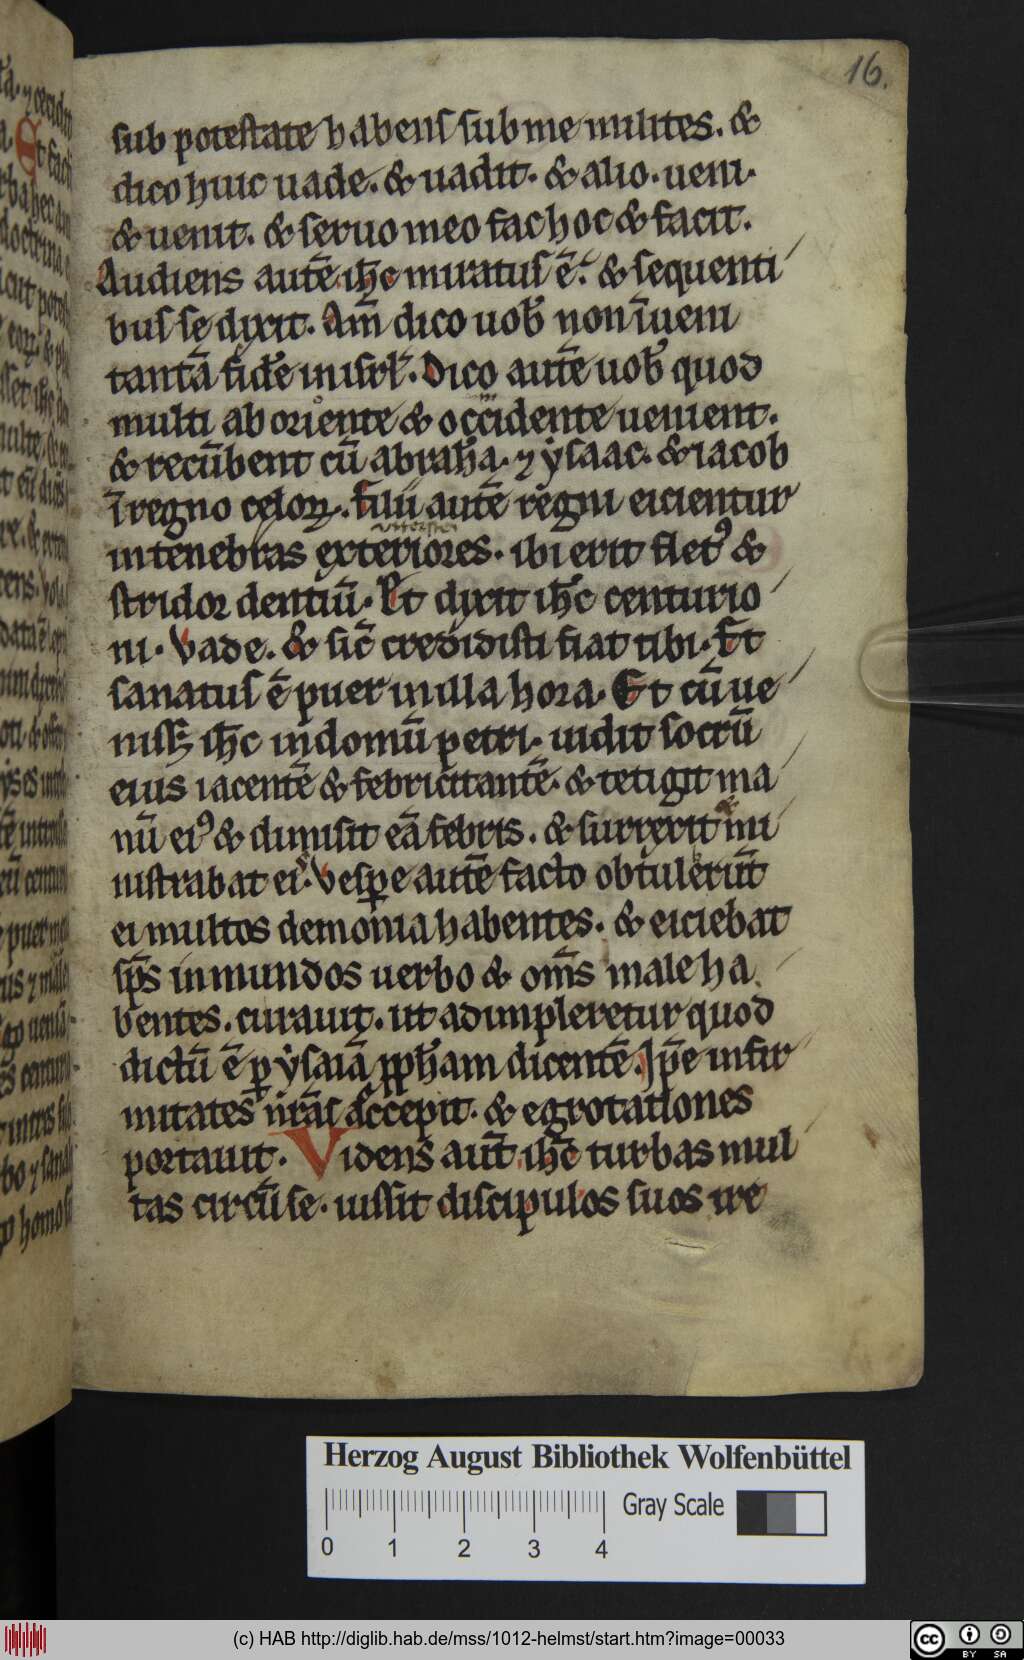 16.
sub potestate habens sub me milites. &
dico huic uade. & uadit. & alio. ueni.
& uenit. & seruo meo fac hoc & facit.
Audiens autē ih̄c miratus ē. & sequenti
bus se dixit. Am̄ dico uob̄ non īueni
tantā fidē in isrl̄. Dico autē uob̄ quod
multi ab oriente & occidente uenient.
& recūbent cū abrahā. ⁊ ẏsaac. & iacob
ī regno celoꝝ. filii autē regni eicientur
in tenebras exteriores. ibi erit fletꝰ &
stridor dentiū. Et dixit ih̄c centurio
ni. Vade. & sic̄ credidisti fiat tibi. Et
sanatus ē puer in illa hora. Et cū ue
niss& ih̄c in domū petri. uidit socrū
eius iacentē & febricitantē. & tetigit ma
nū eiꝰ & dimisit eā febris. & surrexit & mi
nistrabat ei. Vesꝑe autē facto obtulerūt
ei multos demonia habentes. & eiciebat
sp̄s inmundos uerbo & om̄s male ha
bentes. curauit. ut adimpleretur quod
dictū ē ꝑ ẏsaiā ꝓph̄am dicentē. Ip̄e infir
mitates nr̄as accepit. & egrotationes
portauit. Videns aut̄ ih̄c turbas mul
tas circū se. iussit discipulos suos ire
Herzog August Bibliothek Wolfenbüttel
Gray Scale
0 1 2 3 4
(c) HAB http://diglib.hab.de/mss/1012-helmst/start.htm?image=00033
cc BY SA